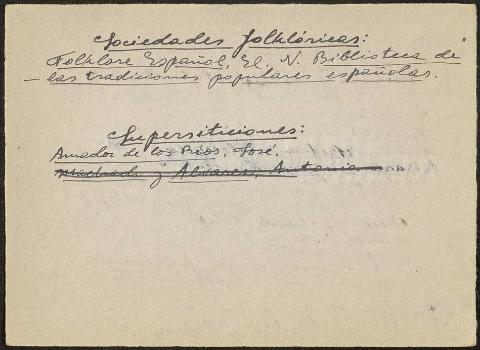 Sociedades folklóricas:
Folklore Español, El. V. Biblioteca de
— las tradiciones populares españolas.
Supersiticiones:
Amador de los Ríos, José.
Machado y Alvarez, Antonio